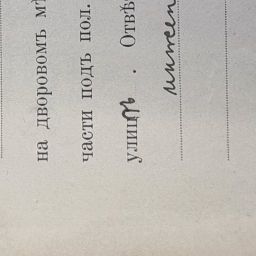 на дворовомъ мѣ
части подъ пол.
улицѣ. Отвѣ